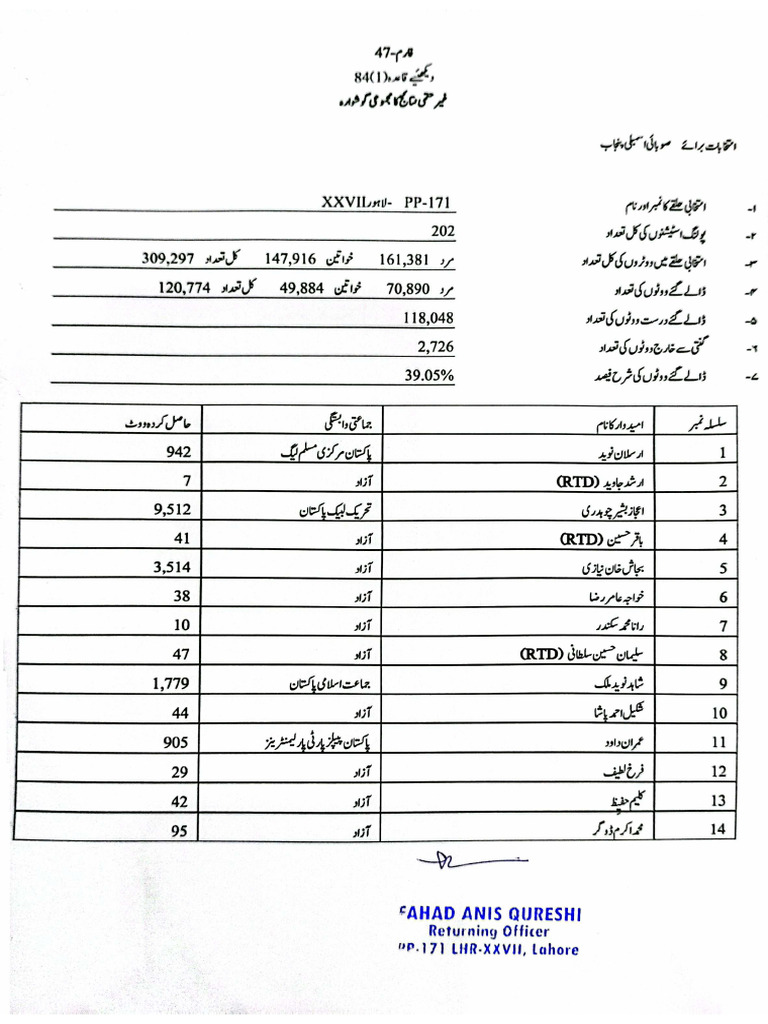 فارم-47
دیکھئیے قاعدہ (1)84
غیر حتمی نتائج کا مجموعی گوشوارہ
انتخابات برائے صوبائی اسمبلی پنجاب
۱- انتخابی حلقے کا نمبر اور نام PP-171 -لاہور XXVII
۲- پولنگ اسٹیشنوں کی کل تعداد 202
۳- انتخابی حلقے میں ووٹروں کی کل تعداد مرد 161,381 خواتین 147,916 کل تعداد 309,297
۴- ڈالے گئے ووٹوں کی تعداد مرد 70,890 خواتین 49,884 کل تعداد 120,774
۵- ڈالے گئے درست ووٹوں کی تعداد 118,048
۶- گنتی سے خارج ووٹوں کی تعداد 2,726
۷- ڈالے گئے ووٹوں کی شرح فیصد 39.05%
سلسلہ نمبر امیدوار کا نام جماعتی وابستگی حاصل کردہ ووٹ
1 ارسلان نوید پاکستان مرکزی مسلم لیگ 942
2 ارشد جاوید (RTD) آزاد 7
3 اعجاز بشیر چوہدری تحریک لبیک پاکستان 9,512
4 باقر حسین (RTD) آزاد 41
5 بجاش خان نیازی آزاد 3,514
6 خواجہ عامر رضا آزاد 38
7 رانا محمد سکندر آزاد 10
8 سلیمان حسین سلطانی (RTD) آزاد 47
9 شاہد نوید ملک جماعت اسلامی پاکستان 1,779
10 شکیل احمد پاشا آزاد 44
11 عمران داود پاکستان پیپلز پارٹی پارلیمنٹرینز 905
12 فرخ لطیف آزاد 29
13 کلیم حفیظ آزاد 42
14 محمد اکرم ڈوگر آزاد 95
FAHAD ANIS QURESHI
Returning Officer
PP-171 LHR-XXVII, Lahore